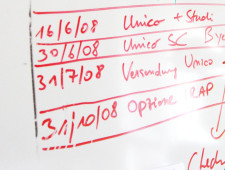 16/6/08 Unico + Studi
30/6/08 Unico SC
31/7/08 Versendung Unico
31/10/08 Opzione IRAP